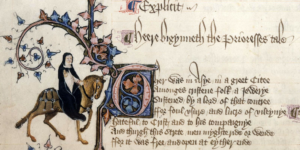 Explicit
Heere bigynneth the Prioresses tale
Ther was in Asye in a greet Citee
Amonges cristene folk a Jewerye
Sustened by a lord of that contree
For foul usure and lucre of vileynye
Hateful to Crist and to his compaignye
And thurgh this strete men myght ride or wende
For it was free and open at eyther ende